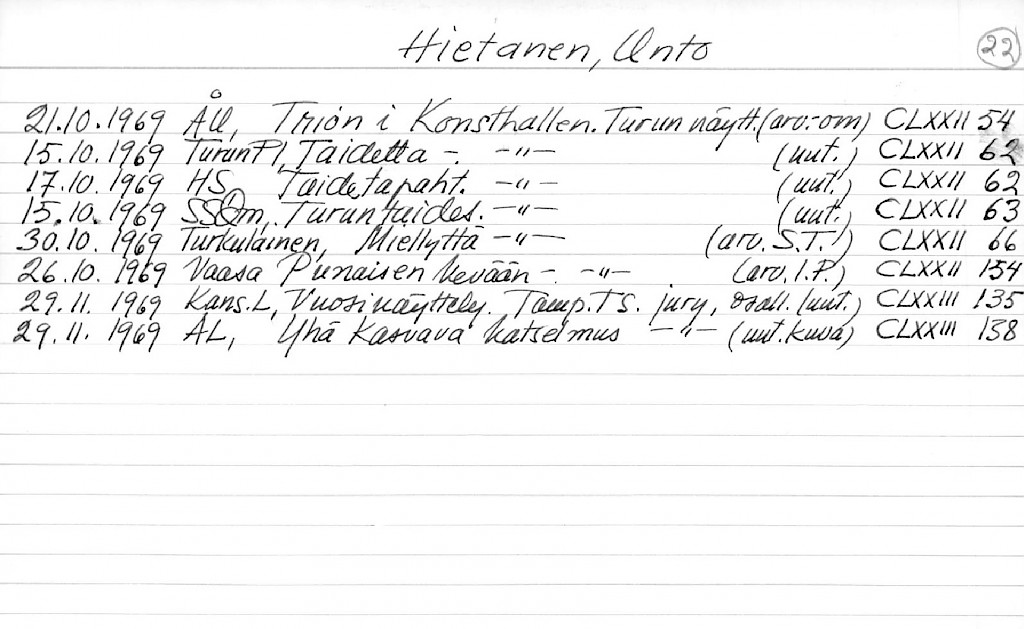 Hietanen, Unto 22
21.10.1969 ÅU, Trion i Konsthallen. Turun näytt. (arv:-om) CLXXII 54
15.10.1969 TurunPl, Taidetta -. -"- (uut.) CLXXII 62
17.10.1969 HS Taidetapaht. -"- (uut.) CLXXII 62
15.10.1969 Turun taides. -"- (uut.) CLXXII 63
30.10.1969 Turkulainen, Miellyttä -"- (arv. S.T.) CLXXII 66
26.10.1969 Vaasa Punaisen kevään -. -"- (arv. I.P.) CLXXII 154
29.11.1969 Kans.L, Vuosinäyttely. Tamp.TS. jury, osall. (uut.) CLXXIII 135
29.11.1969 AL, Yhä Kasvava katselmus -"- (uut.kuva) CLXXIII 138